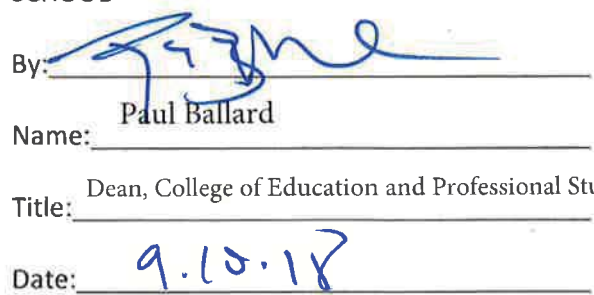 By:
Paul Ballard
Name:
Dean, College of Education and Professional Stu
Title:
Date: 9.10.18